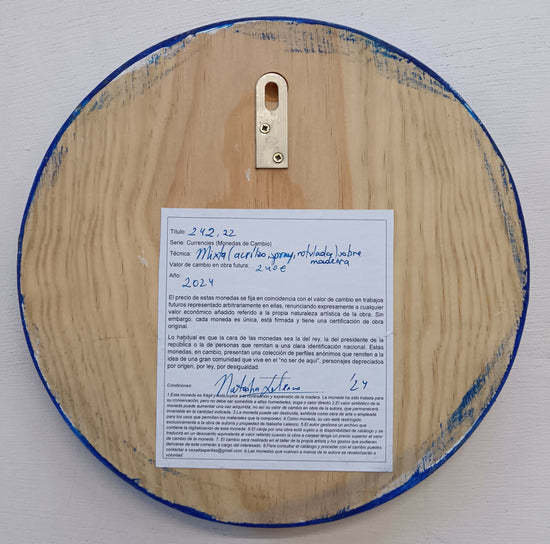 Título: 242,22
Serie: Currencies (Monedas de Cambio)
Técnica: Mixta (acrílico, spray, rotulador) sobre
madera
Valor de cambio en obra futura: 240€
Año: 2024
El precio de estas monedas se fija en coincidencia con el valor de cambio en trabajos
futuros representado arbitrariamente en ellas, renunciando expresamente a cualquier
valor económico añadido referido a la propia naturaleza artística de la obra. Sin
embargo, cada moneda es única, está firmada y tiene una certificación de obra
original.
Lo habitual es que la cara de las monedas sea la del rey, la del presidente de la
república o la de personas que remitan a una clara identificación nacional. Estas
monedas, en cambio, presentan una colección de perfiles anónimos que remiten a la
idea de una gran comunidad que vive en el "no ser de aquí", personajes depreciados
por origen, por ley, por desigualdad.
Condiciones: Natasha Lelenco '24
1.Esta moneda es frágil y está sujeta a dilatación y expansión de la madera. La moneda ha sido tratada
para su conservación, pero no debe ser sometida a altas humedades, luz o calor directo 2.El valor simbólico de la
moneda puede aumentar una vez adquirida; no así su valor de cambio en obra de la autora, que permanecerá
invariable en la cantidad indicada. 3.La moneda puede ser destruida, exhibida como obra de arte o empleada
para los usos que permitan los materiales que la componen. 4.Como moneda, su uso está restringido
exclusivamente a la obra de autoría y propiedad de Natasha Lelenco. 5.El autor gestiona un archivo que
contiene la digitalización de esta moneda. 6.El canje por una obra está sujeto a la disponibilidad de catálogo y se
traducirá en un descuento equivalente al valor referido cuando la obra a canjear tenga un precio superior al valor
de cambio de la moneda. 7. El cambio será realizado en el taller de la propia artista y los gastos que pudieran
derivarse de este correrán a cargo del interesado. 8.Para consultar el catálogo y proceder con el cambio puedes
contactar a
9.Las monedas que vuelvan a manos de la autora se revalorizarán a
voluntad.